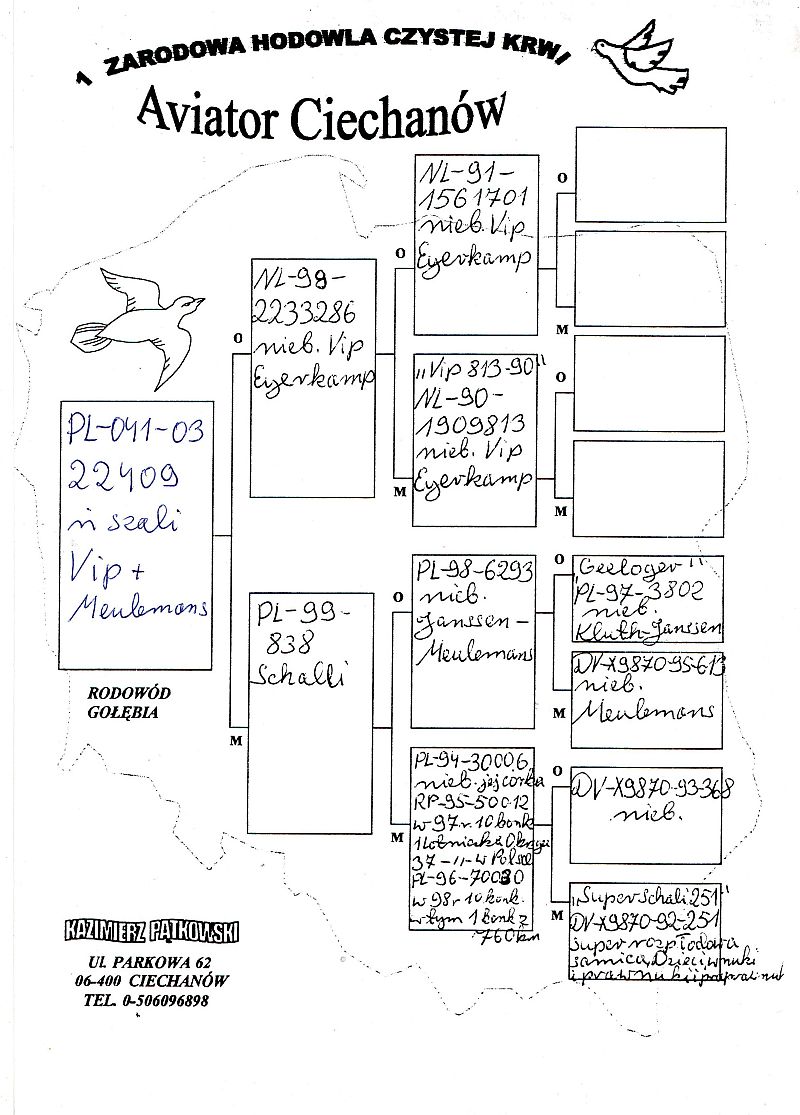 1 ZARODOWA HODOWLA CZYSTEJ KRWI
Aviator Ciechanów
O
NL-91-
1561701
nieb. Vip
Eyerkamp
O
M
O
NL-98-
2233286
nieb. Vip
Eyerkamp
M
„Vip 813-90"
NL-90-
1909813
nieb. Vip
Eyerkamp
O
M
PL-041-03
22409
szali
Vip +
Meulemans
RODOWÓD
GOŁĘBIA
M
PL-99-
838
Schalli
O
PL-98-6293
nieb.
Janssen-
Meulemans
O
"Geeloger"
PL-97-3802
nieb.
Kluth-Janssen
M
DV-X9870-95-613
nieb.
Meulemans
M
PL-94-30006
nieb. jej córka
RP-95-50012
w 97r. 10 konk
1 Lotniczka Okręgu
37 -"- w Polsce
PL-96-70030
w 98r 10 konk.
w tym 1 konk z
760km
O
DV-X9870-93-368
nieb.
M
„Super Schali 251"
DV-X9870-92-251
super rozpłodowa
samica, Dzieci, wnuki
i prawnuki i
KAZIMIERZ PĄTKOWSKI
Ul. PARKOWA 62
06-400 CIECHANÓW
TEL. 0-506096898